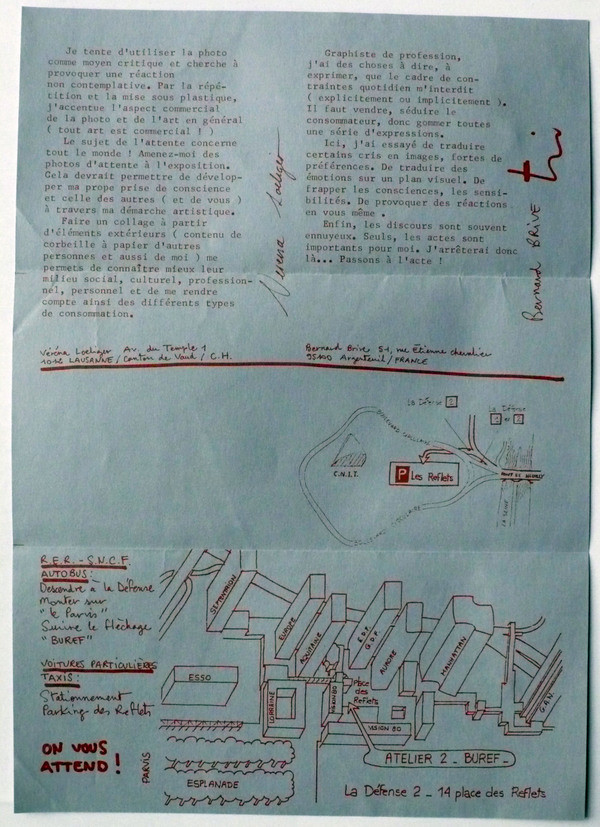 Je tente d'utiliser la photo
comme moyen critique et cherche à
provoquer une réaction
non contemplative. Par la répé-
tition et la mise sous plastique,
j'accentue l'aspect commercial
de la photo et de l'art en général
( tout art est commercial ! )
Le sujet de l'attente concerne
tout le monde ! Amenez-moi des
photos d'attente à l'exposition.
Cela devrait permettre de dévelop-
per ma propre prise de conscience
et celle des autres ( et de vous )
à travers ma démarche artistique.
Faire un collage à partir
d'éléments extérieurs ( contenu de
corbeille à papier d'autres
personnes et aussi de moi ) me
permets de connaître mieux leur
milieu social, culturel, profession-
nel, personnel et de me rendre
compte ainsi des différents types
de consommation.
Verena Loeliger
Graphiste de profession,
j'ai des choses à dire, à
exprimer, que le cadre de con-
traintes quotidien m'interdit
( explicitement ou implicitement ).
Il faut vendre, séduire le
consommateur, donc gommer toutes
une série d'expressions.
Ici, j'ai essayé de traduire
certains cris en images, fortes de
préférences. De traduire des
émotions sur un plan visuel. De
frapper les consciences, les sensi-
bilités. De provoquer des réactions
en vous même .
Enfin, les discours sont souvent
ennuyeux. Seuls, les actes sont
importants pour moi. J'arrêterai donc
là... Passons à l'acte !
Bernard BRIVE
Véréna Loeliger Av. du Temple 1
1012 LAUSANNE / Canton de Vaud / C.H.
Bernard Brive 51, rue Étienne chevalier
95100 Argenteuil / FRANCE
La Défense 2
La Défense
1 et 2
BOULEVARD CIRCULAIRE
C.N.I.T.
P Les Reflets
PONT DE NEUILLY
LA SEINE
R.E.R. - S.N.C.F
AUTOBUS :
Descendre à la Défense
Monter sur
"le Parvis"
Suivre le fléchage
"BUREF"
VOITURES PARTICULIÈRES
TAXIS :
Stationnement
Parking des Reflets
ON VOUS
ATTEND !
SEPTENTRION
EUROPE
AQUITAINE
E.D.F.
G.D.F.
AURORE
MANHATTAN
G.A.N.
ESSO
LORRAINE
Place
des
Reflets
VISION 80
PARVIS
ESPLANADE
ATELIER 2 _ BUREF _
La Défense 2 _ 14 place des Reflets